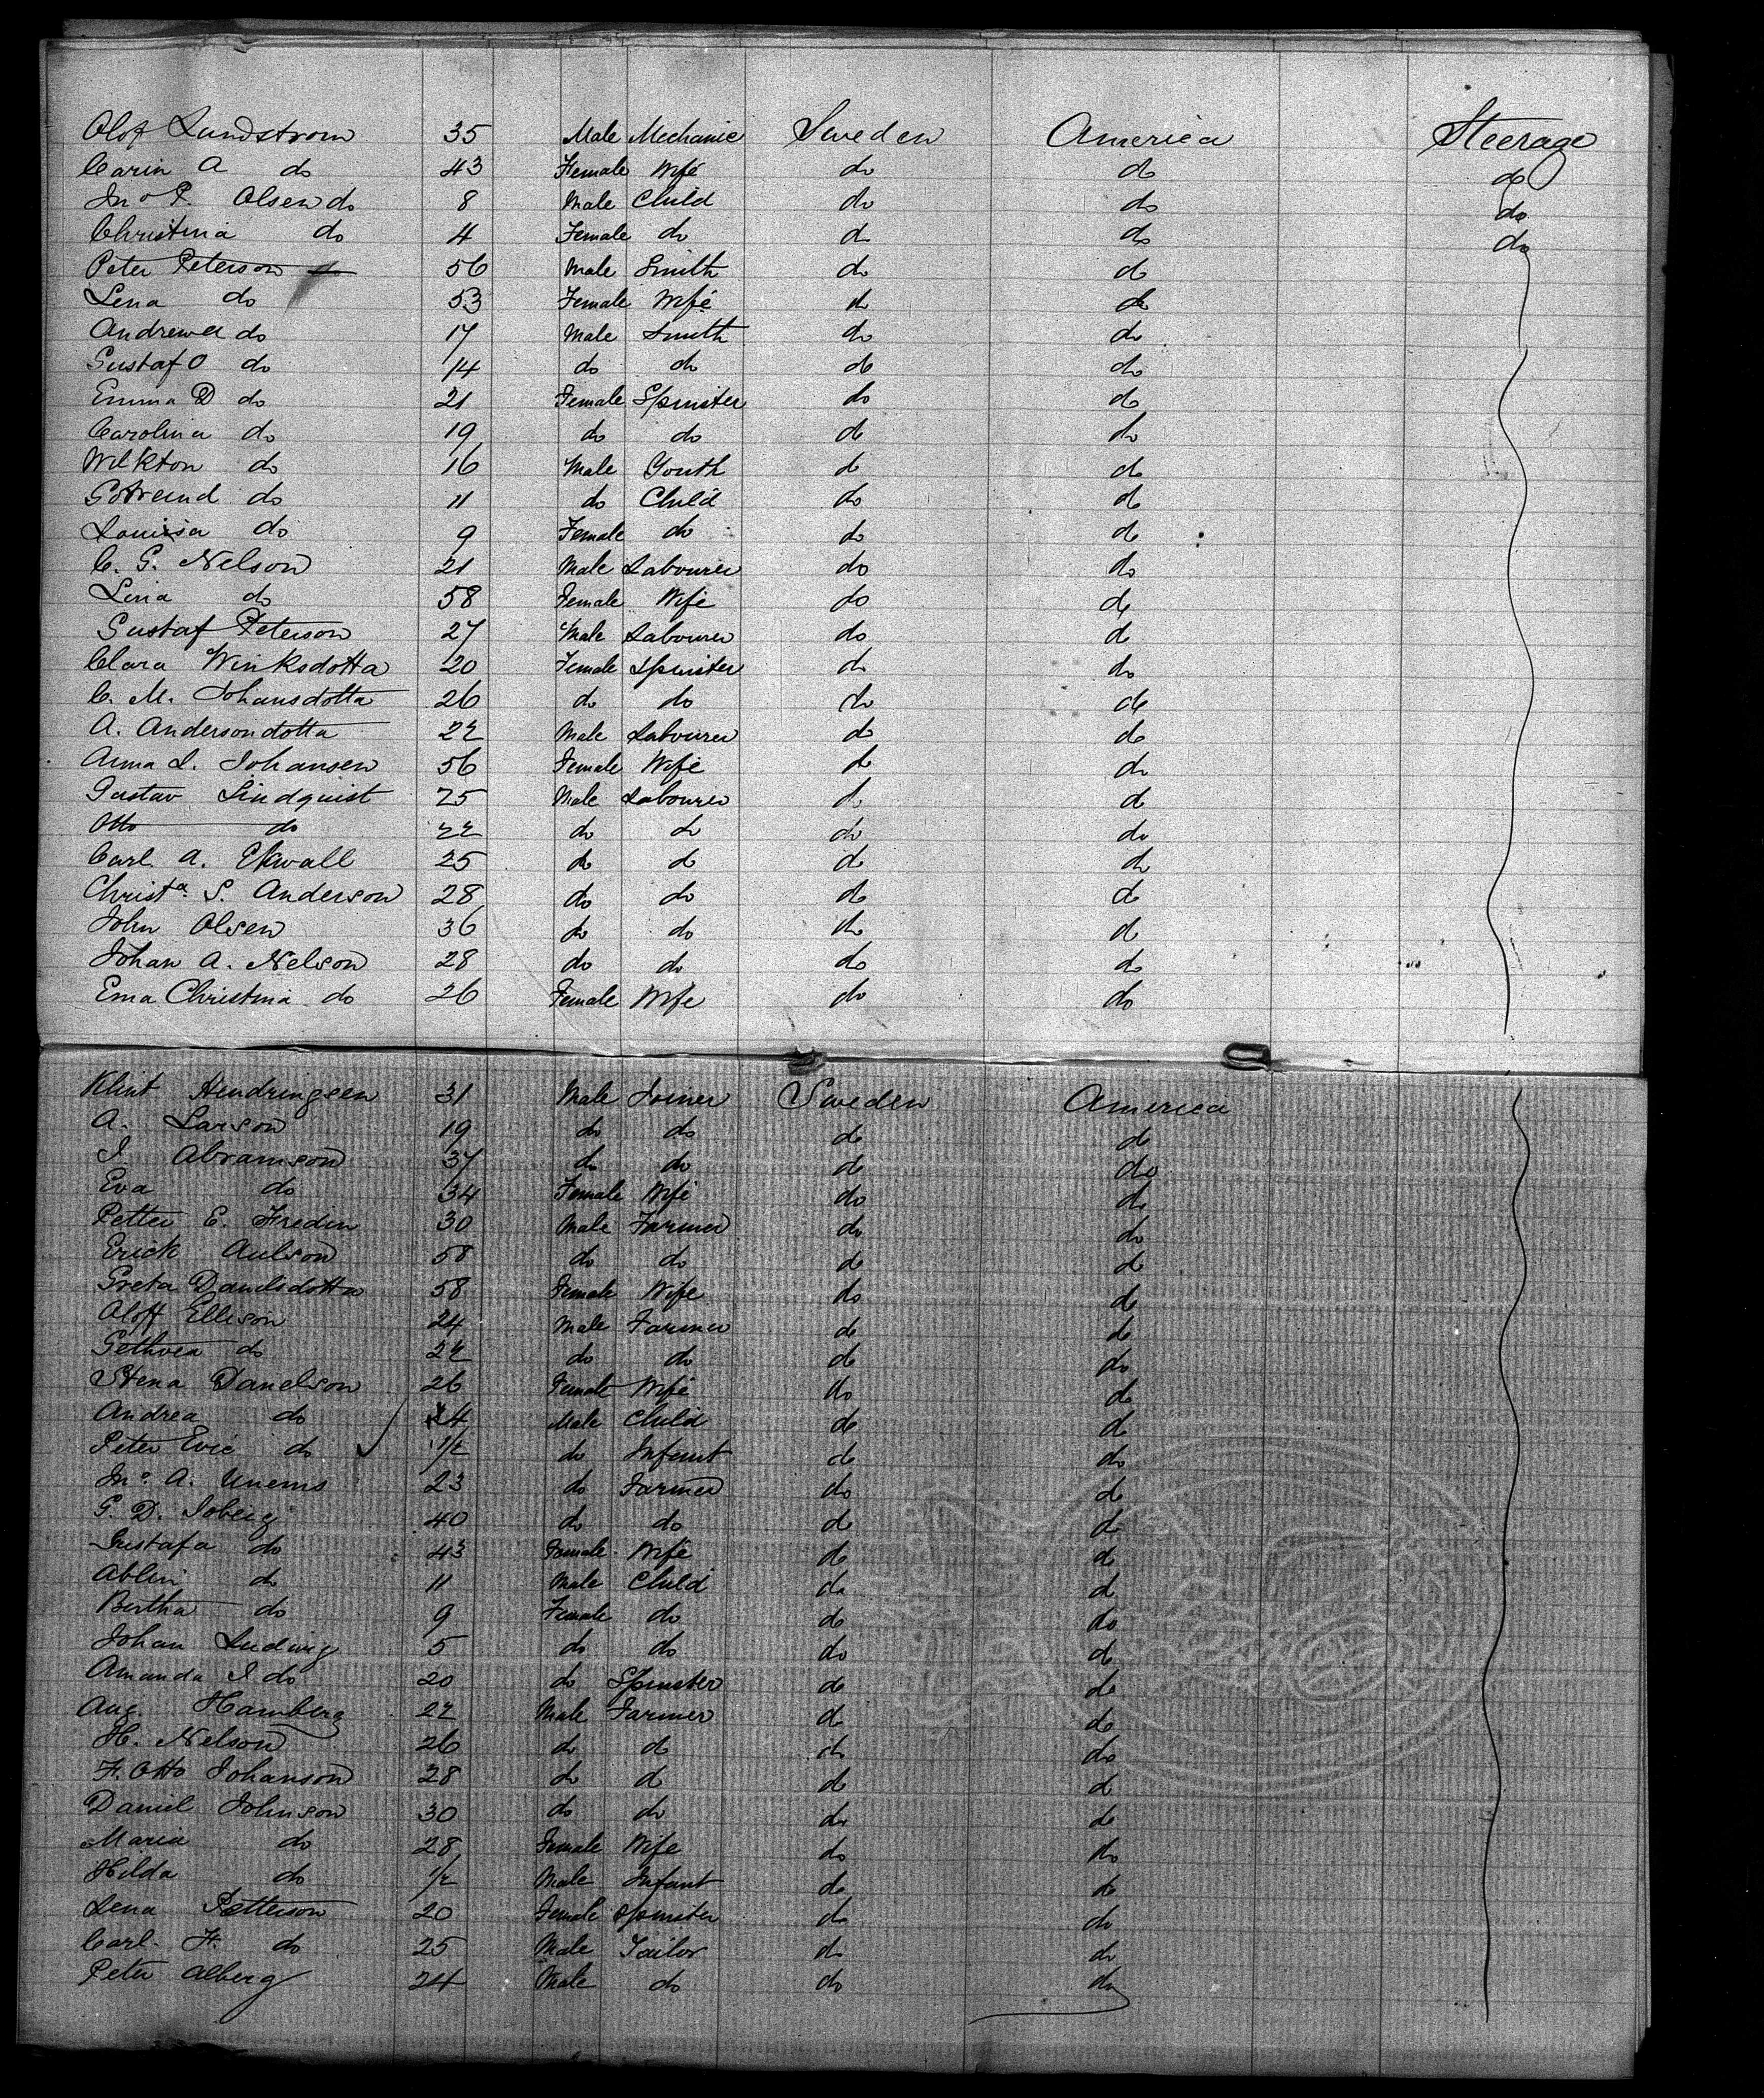 Olof Lundstrom 35 Male Mechanic Sweden America Steerage
Carin A do 43 Female Wife do do do
Jno P. Olsen do 8 Male Child do do do
Christina do 4 Female do do do do
Peter Peterson do 56 Male Smith do do
Lena do 53 Female Wife do do
Andrew A do 17 Male Smith do do
Gustaf O do 14 do do do do
Emma D do 21 Female Spinster do do
Carolina do 19 do do do do
Wilkton do 16 Male Youth do do
do 11 do Child do do
Louisa do 9 Female do do do
C. G. Nelson 21 Male Labourer do do
Lina do 58 Female Wife do do
Gustaf Peterson 27 Male Labourer do do
Clara Winksdotta 20 Female Spinster do do
C. M. Johansdotta 26 do do do do
A. Andersondotta 22 Male Labourer do do
Anna L. Johansen 56 Female Wife do do
Gustav Lindquist 25 Male Labourer do do
Otto do 22 do do do do
Carl A. Ekwall 25 do do do do
Christa. S. Anderson 28 do do do do
John Olsen 36 do do do do
Johan A. Nelson 28 do do do do
Ema Christina do 26 Female Wife do do
Klint Hendringsen 31 Male Joiner Sweden America
A. Larson 19 do do do do
J. Abramson 37 do do do do
Eva do 34 Female Wife do do
Petter E. Fredin 30 Male Farmer do do
Erick Aulson 58 do do do do
Greta Danilsdotta 58 Female Wife do do
Oloff Ellison 24 Male Farmer do do
Gethvea do 22 do do do do
Stena Danelson 26 Female Wife do do
Andrea do 4 Male Child do do
Peter Eric do 1/2 do Infant do do
Jno. A. Unems 23 do Farmer do do
G. D. Soberg 40 do do do do
Gustafa do 43 Female Wife do do
Ablin do 11 Male Child do do
Bertha do 9 Female do do do
Johan Ludwig 5 do do do do
Amanda J. do 20 do Spinster do do
Aug. Hamberg 22 Male Farmer do do
H. Nelson 26 do do do do
F. Otto Johanson 28 do do do do
Daniel Johnson 30 do do do do
Maria do 28 Female Wife do do
Hilda do 1/2 Male Infant do do
Lena Petterson 20 Female Spinster do do
Carl. F. do 25 Male Tailor do do
Peter Alberg 24 Male do do do